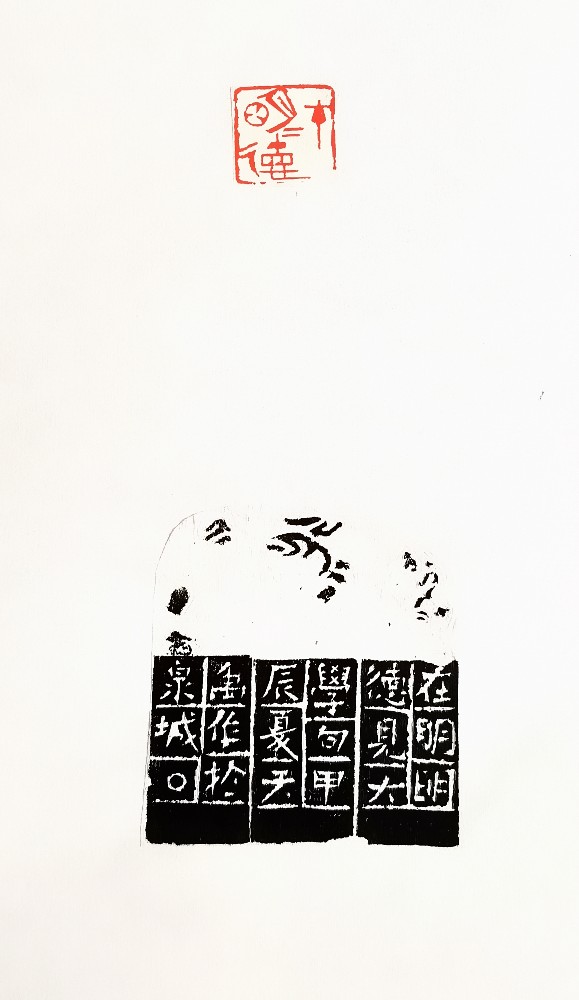 在明=德
在明明
德見大
學句甲
辰夏天
魚作於
泉城○